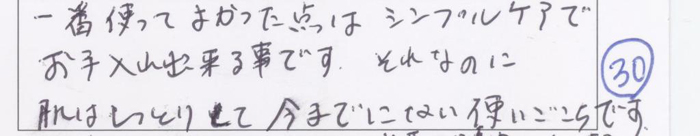 一番使ってよかった点はシンプルケアで
お手入れ出来る事です. それなのに
肌はしっとりして今までにない使いごこちです.
30